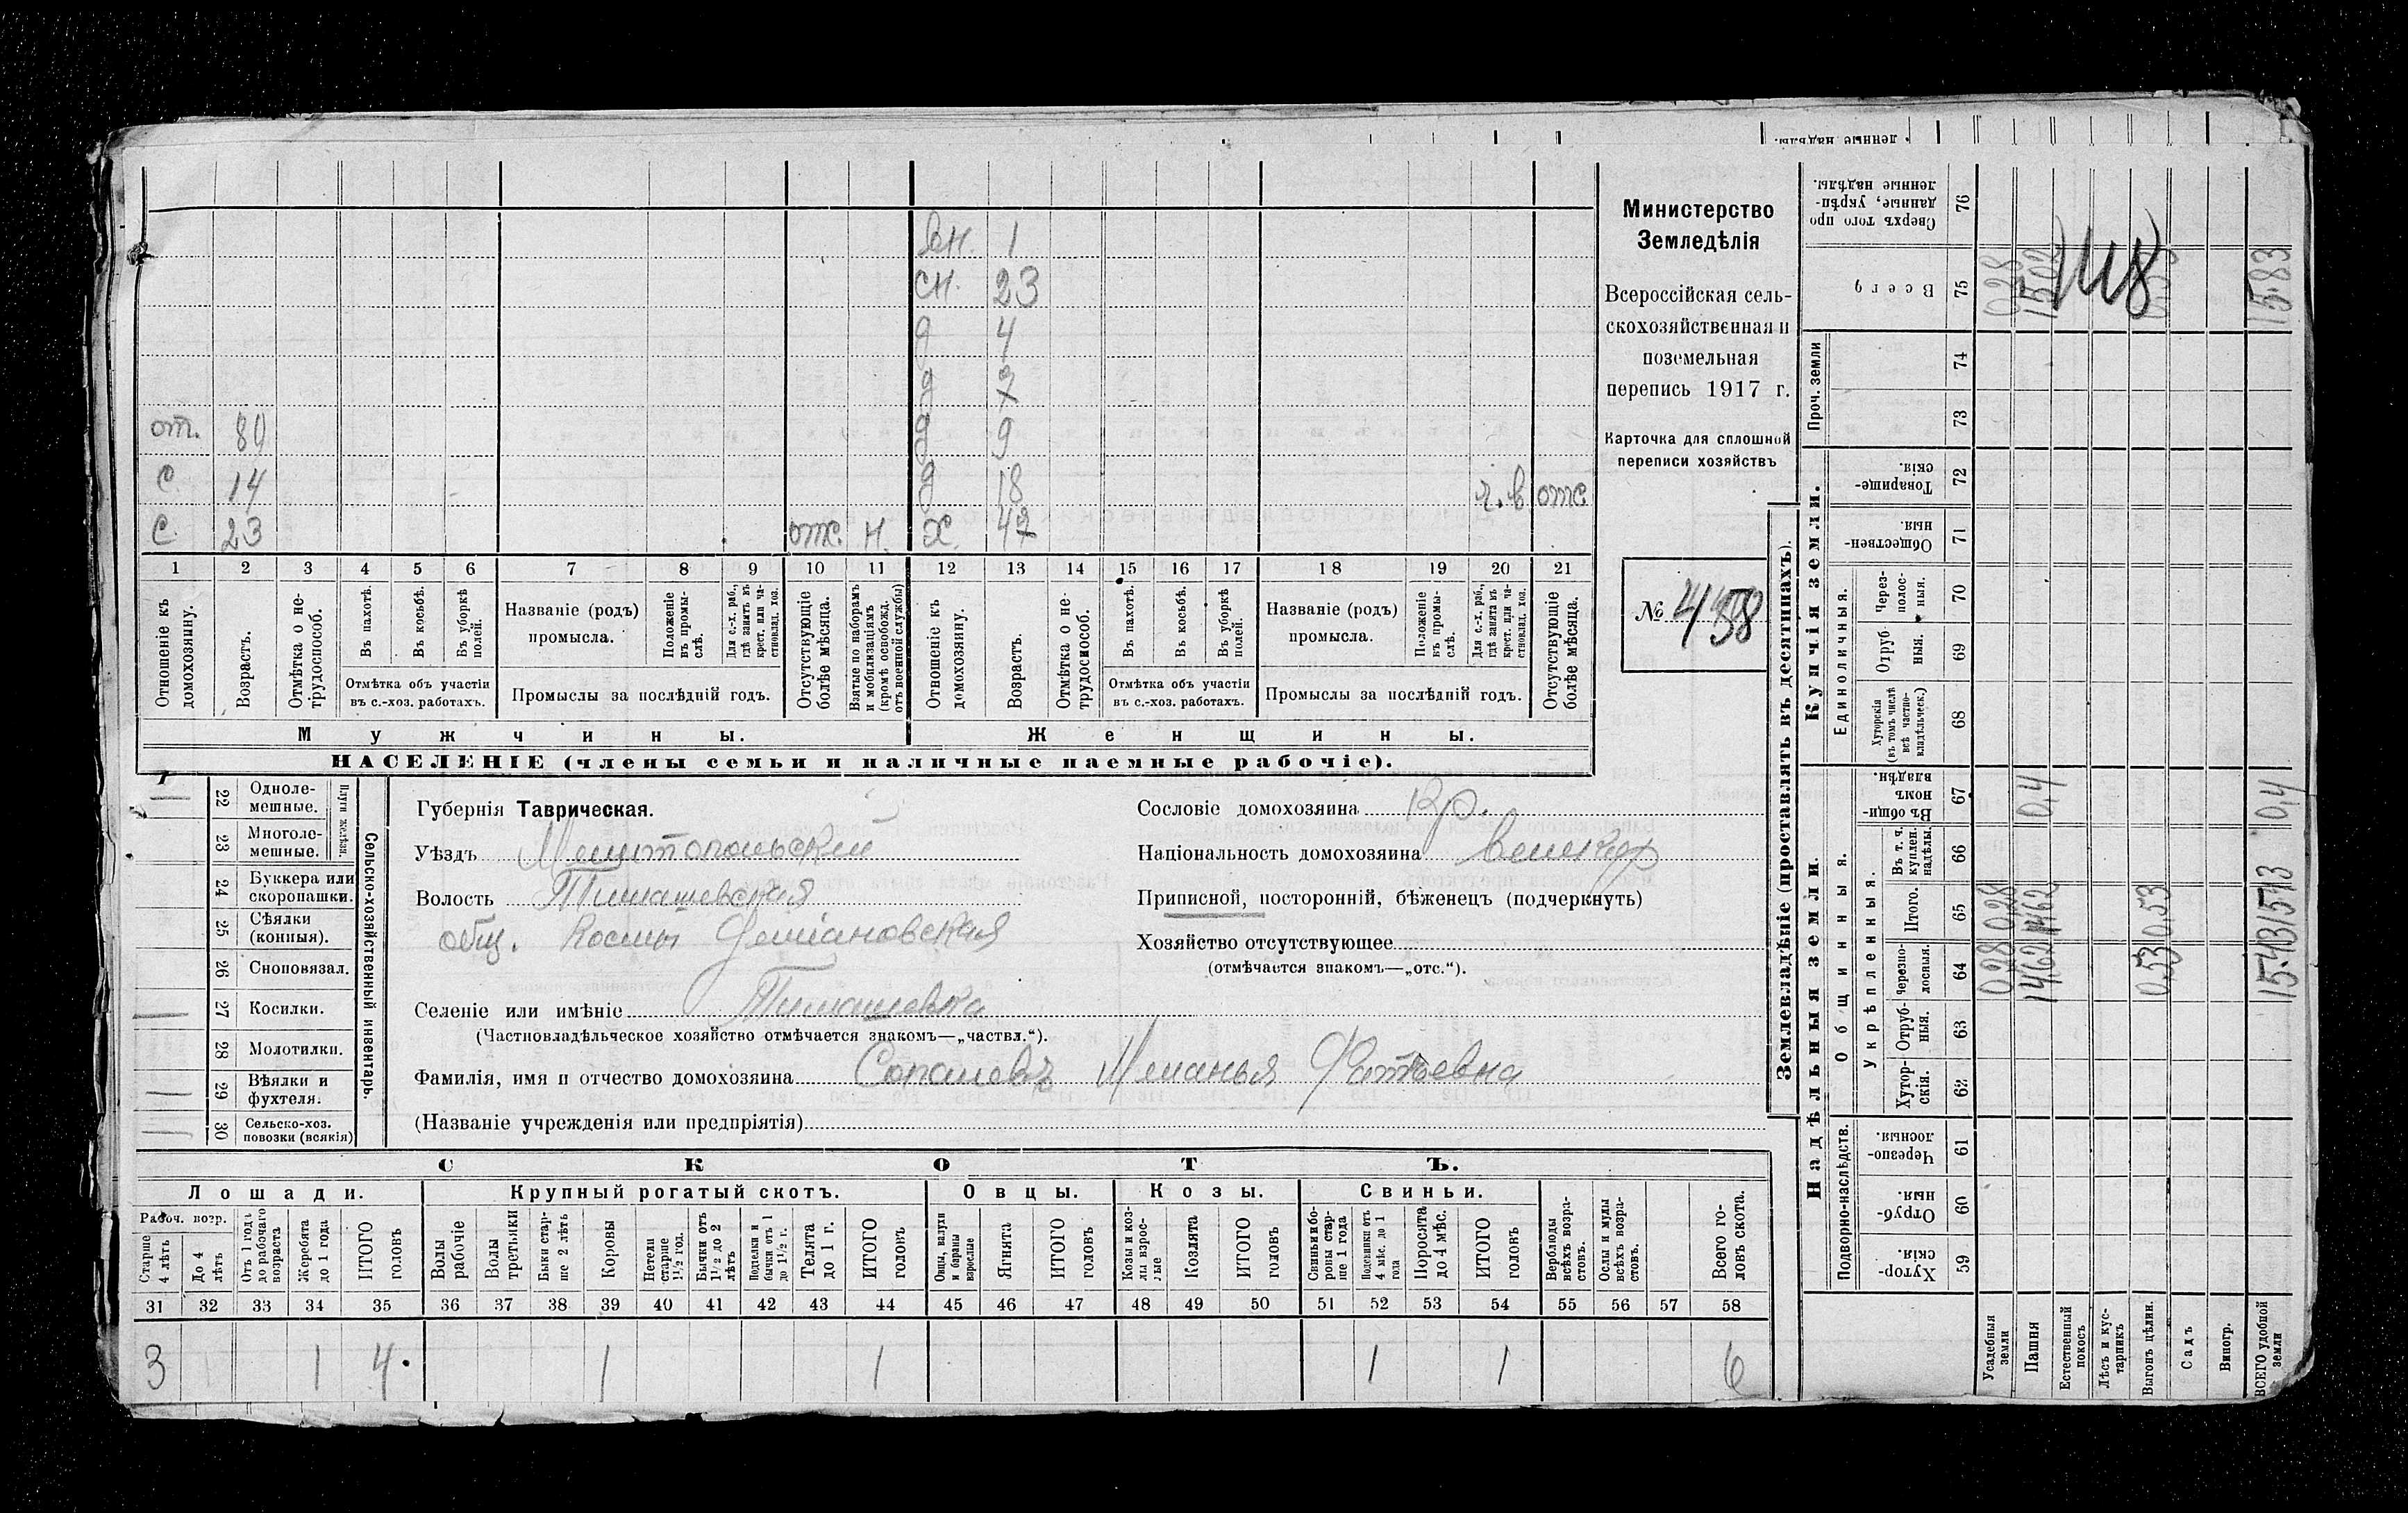 ленные надѣлы.
вн. 1
сн. 23
д 4
д 7
д 9
от. 80
с 14 д 18 ч. в отс
с. 23 отс. н. х. 47
1 2 3 4 5 6 7 8 9 10 11 12 13 14 15 16 17 18 19 20 21
Отношеніе къ домохозяину.
Возрастъ.
Отмѣтка о нетрудоспособ.
Въ пахотѣ.
Въ косьбѣ.
Въ уборкѣ полей.
Отмѣтка объ участіи въ с.-хоз. работахъ.
Названіе (родъ) промысла.
Положеніе въ промыслѣ.
Для с.-х. раб., гдѣ занятъ въ крест. или частновлад. хоз.
Промыслы за послѣдній годъ.
Отсутствующіе болѣе мѣсяца.
Взятые по наборамъ и мобилизаціямъ (кромѣ освобожд. отъ военной службы)
Отношеніе къ домохозяину.
Возрастъ.
Отмѣтка о нетрудоспособ.
Въ пахотѣ.
Въ косьбѣ.
Въ уборкѣ полей.
Отмѣтка объ участіи въ с.-хоз. работахъ.
Названіе (родъ) промысла.
Положеніе въ промыслѣ.
Для с.-х. раб., гдѣ занята въ крест. или частновлад. хоз.
Промыслы за послѣдній годъ.
Отсутствующіе болѣе мѣсяца.
Мужчины. Женщины.
НАСЕЛЕНІЕ (члены семьи и наличные наемные рабочіе).
Министерство
Земледѣлія
Всероссійская сель-
скохозяйственная и
поземельная
перепись 1917 г.
Карточка для сплошной
переписи хозяйствъ
№ 458
22 Однолемешные.
23 Многолемешные.
Плуги желѣзн.
24 Буккера или скоропашки.
25 Сѣялки (конныя).
26 Сноповязал.
27 Косилки.
28 Молотилки.
29 Вѣялки и фухтеля.
30 Сельско-хоз. повозки (всякія)
Сельско-хозяйственный инвентарь.
Губернія Таврическая.
Уѣздъ Мелитопольскій
Волость Тимашевская
общ. Космы Демiановская
Селеніе или имѣніе Тимашевка
(Частновладѣльческое хозяйство отмѣчается знакомъ—„частвл.“).
Фамилія, имя и отчество домохозяина Меланья
(Названіе учрежденія или предпріятія)
Сословіе домохозяина Кр.
Національность домохозяина
Приписной, посторонній, бѣженецъ (подчеркнуть)
Хозяйство отсутствующее
(отмѣчается знакомъ—„отс.“).
СКОТЪ.
Лошади. Крупный рогатый скотъ. Овцы. Козы. Свиньи.
Рабоч. возр.
Старше 4 лѣтъ
До 4 лѣтъ
Отъ 1 года до рабочаго возраста
Жеребята до 1 года
ИТОГО головъ
Волы рабочіе
Волы третьяки
Быки старше 2 лѣтъ
Коровы
Нетели старше 1½ год.
Бычки отъ 1½ до 2 лѣтъ
Подтелки и бычки отъ 1 до 1½ г.
Телята до 1 г.
ИТОГО головъ
Овцы, валухи и бараны взрослые
Ягнята
ИТОГО головъ
Козы и козлы взрослые
Козлята
ИТОГО головъ
Свиньи и боровы старше 1 года
Подсвинки отъ 4 мѣс. до 1 года
Поросята до 4 мѣс.
ИТОГО головъ
Верблюды всѣхъ возрастовъ.
Ослы и мулы всѣхъ возрастовъ.
Всего головъ скота.
31 32 33 34 35 36 37 38 39 40 41 42 43 44 45 46 47 48 49 50 51 52 53 54 55 56 57 58
3 1 4 1 1 1 1 6
Землевладѣніе (проставлять въ десятинахъ).
Купчія земли.
Надѣльныя земли.
Сверхъ того проданные, укрѣпленные надѣлы. 76
Всего 75 0.28 1502 15.83
148
Проч. земли 74 73
Товарищескія. 72
Общественныя. 71
Единоличныя.
Черезполосныя. 70
Отрубныя. 69
Хуторскія (въ томъ числѣ всѣ частновладѣльческ.) 68
Общинныя.
Въ общинномъ владѣн. 67 0,4 0,4
Укрѣпленныя.
Въ т. ч. куплен. надѣлы. 66
Итого. 65 0,28 1462 0,53 1543
Черезполосныя. 64 0.28 1462 0.53 15.43
Отрубныя. 63
Хуторскія. 62
Подворно-наслѣдств.
Черезполосныя. 61
Отрубныя. 60
Хуторскія. 59
Усадебныя земли
Пашня
Естественный покосъ
Лѣсъ и кустарникъ
Выгонъ цѣлин.
Садъ
Виногр.
ВСЕГО удобной земли